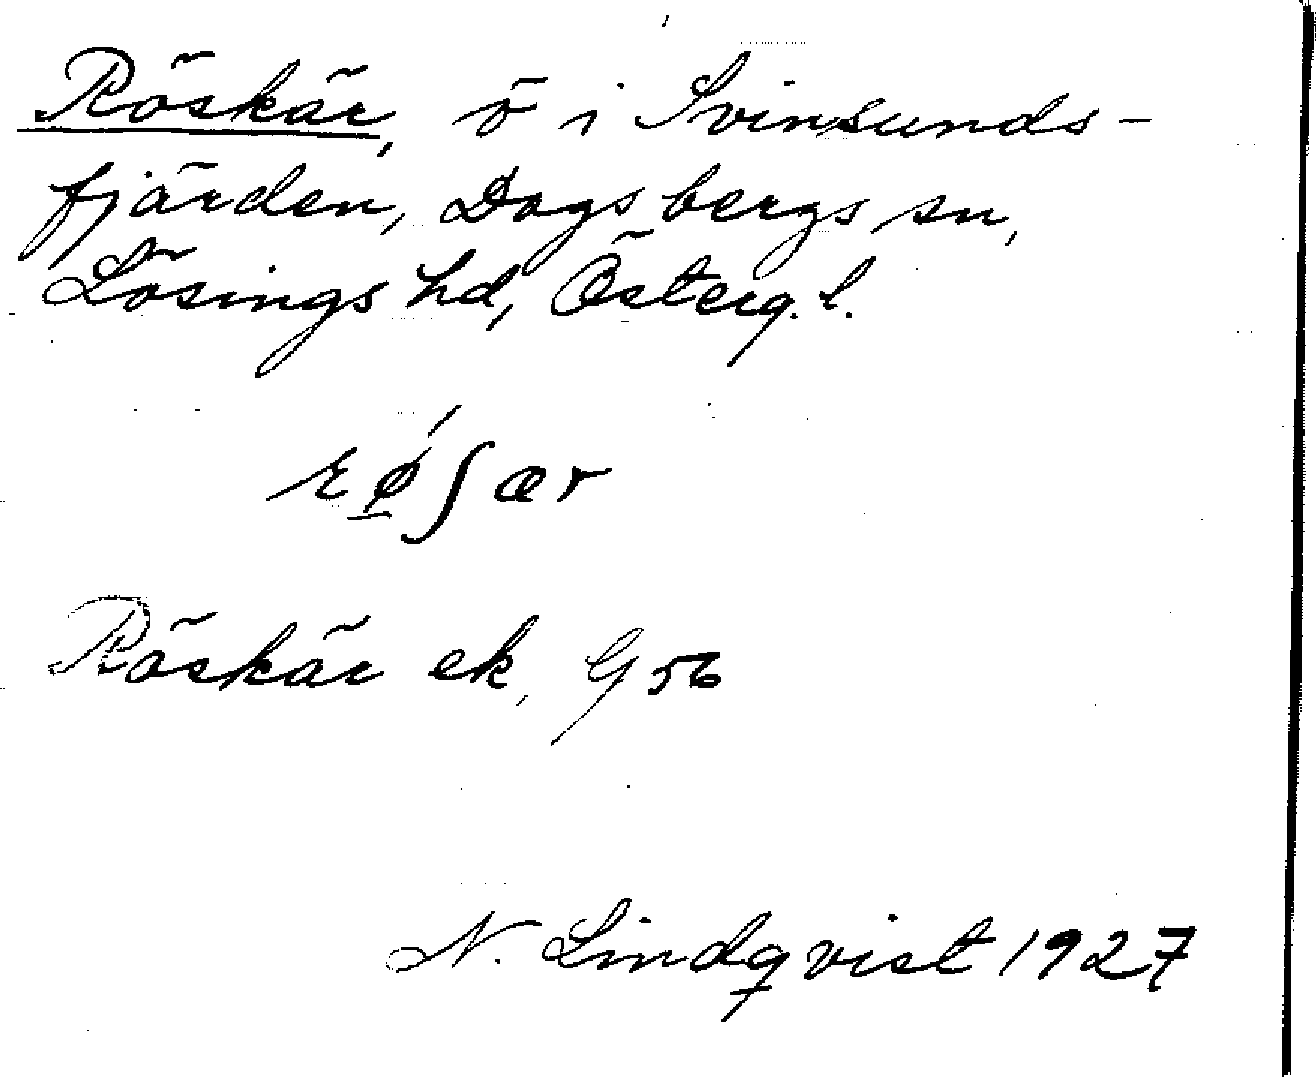 Röskär, ö i Svinsunds-
fjärden, Dagsbergs sn,
Lösings hd, Österg. l.
rǿ̲ʃær
Röskär ek, G 56
N. Lindqvist 1927